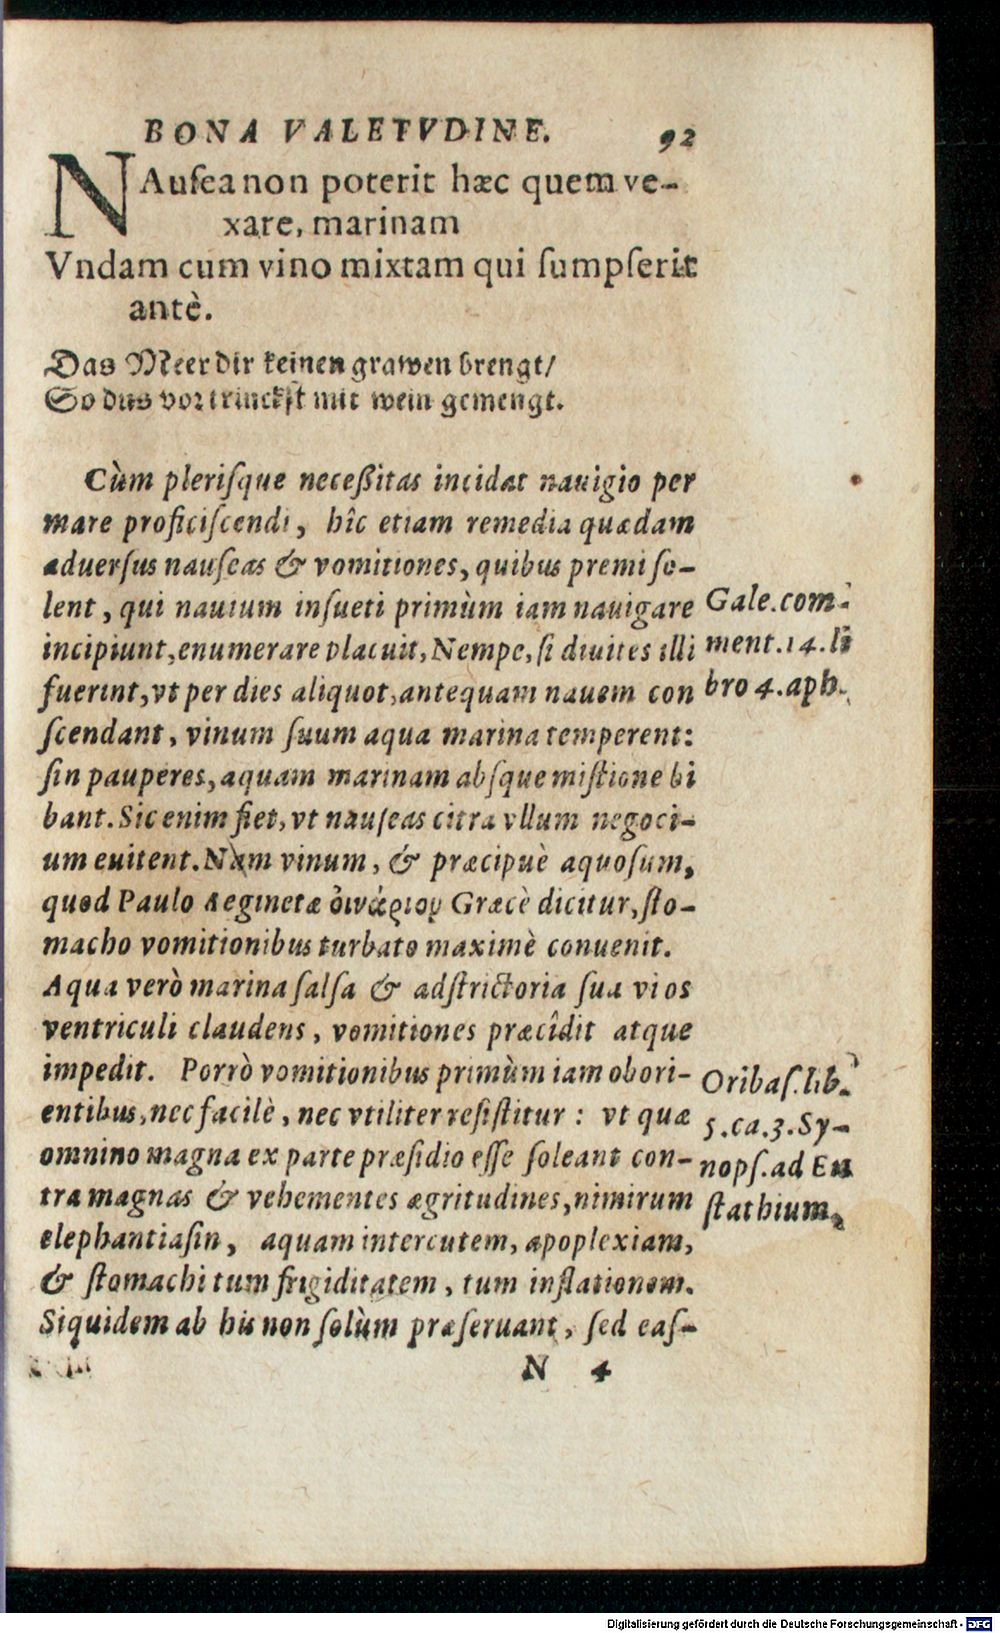 BONA VALETVDINE. 92
NAuſea non poterit hæc quem ve-
xare, marinam
Vndam cum vino mixtam qui ſumpſerit
antè.
Das Meer dir keinen grawen brengt/
So dus vor trinckſt mit wein gemengt.
Cùm pleriſque neceßitas incidat nauigio per
mare proficiſcendi, hîc etiam remedia quædam
aduerſus nauſeas & vomitiones, quibus premi ſo-
lent, qui nautum inſueti primùm iam nauigare
Gale.com-
incipiunt, enumerare placuit, Nempe, ſi diuites illi
ment.14.li
fuerint, vt per dies aliquot, antequam nauem con
bro 4.aph.
ſcendant, vinum ſuum aqua marina temperent:
ſin pauperes, aquam marinam abſque miſtione bi
bant. Sic enim fiet, vt nauſeas citra vllum negoci-
um euitent. Nàm vinum, & præcipuè aquoſum,
quod Paulo Aeginetæ ὀινάριον Græcè dicitur, ſto-
macho vomitionibus turbato maximè conuenit.
Aqua verò marina ſalſa & adſtrictoria ſua vi os
ventriculi claudens, vomitiones præcîdit atque
impedit. Porrò vomitionibus primùm iam obori-
Oribaſ.lib.
entibus, nec facilè, nec vtiliter reſiſtitur: vt quæ
5.ca.3.Sy-
omnino magna ex parte præſidio eſſe ſoleant con-
nopſ.ad Eu
tra magnas & vehementes ægritudines, nimirum
ſtathium.
elephantiaſin, aquam intercutem, apoplexiam,
& ſtomachi tum frigiditatem, tum inflationem.
Siquidem ab his non ſolùm præſeruant, ſed eaſ-
N 4
Digitalisierung gefördert durch die Deutsche Forschungsgemeinschaft - DFG